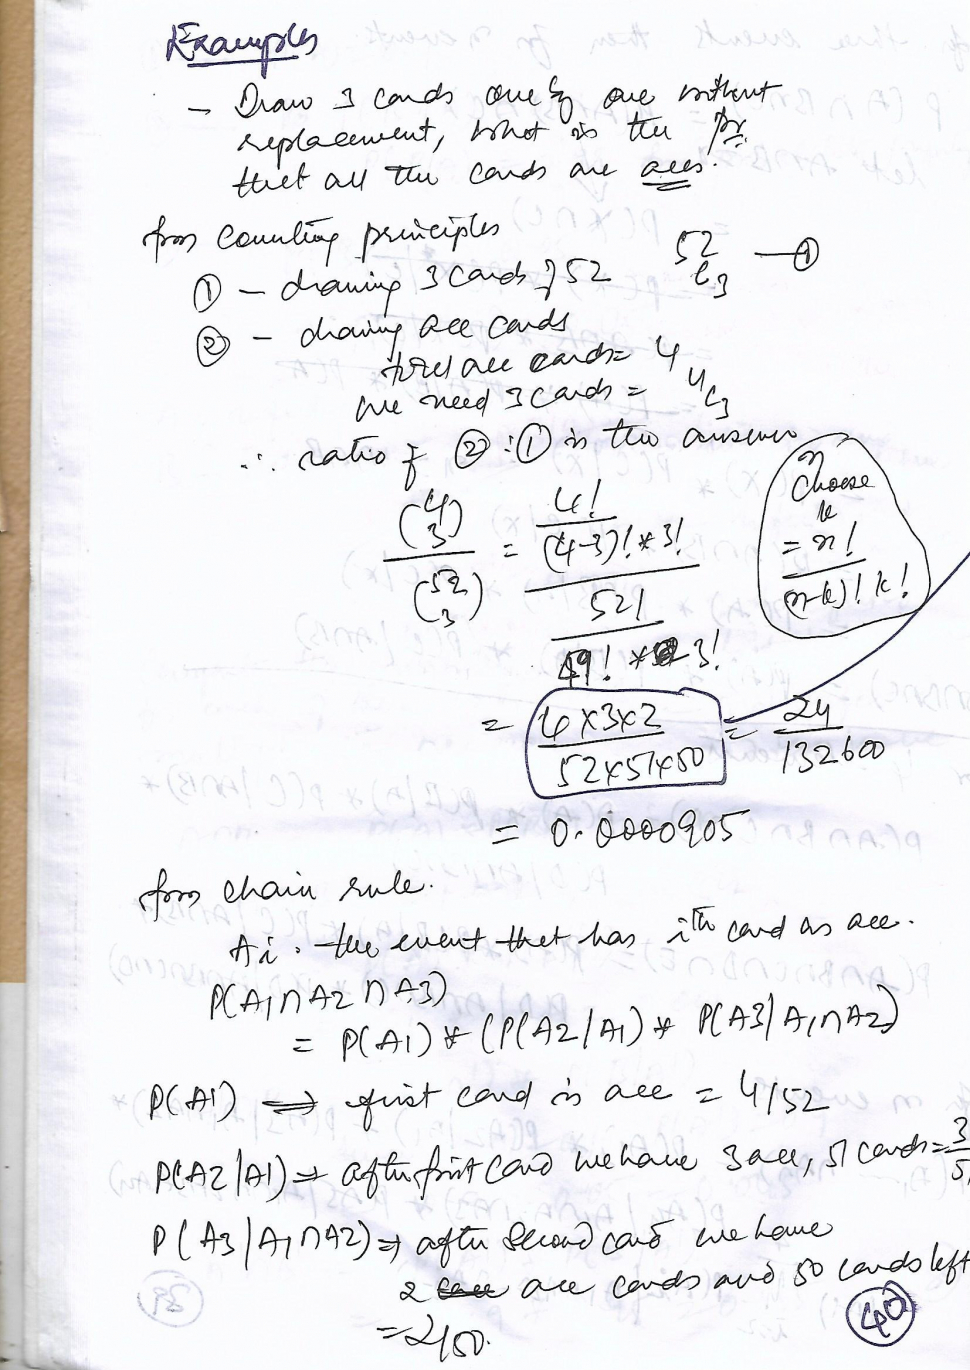 Examples
- Draw 3 cards one by one without
replacement, what is the pr.
that all the cards are aces.
from counting principles
① - drawing 3 cards of 52 52C3 - ①
② - drawing ace cards
total ace cards = 4
we need 3 cards = 4C3
∴ ratio of ② : ① is the answer
(4 3) / (52 3) = 4! / (4-3)! * 3! / 52! / 49! * 3!
n
choose
k
= n!
(n-k)! k!
= 4x3x2 / 52x51x50 = 24 / 132600
= 0.0000905
from chain rule.
Ai. the event that has ith card as ace.
P(A1 ∩ A2 ∩ A3)
= P(A1) * (P(A2/A1) * P(A3/A1∩A2)
P(A1) ⇒ first card is ace = 4/52
P(A2/A1) ⇒ after first card we have 3 ace, 51 cards = 3/5
P(A3/A1∩A2) ⇒ after second card we have
2 ace cards and 50 cards left
= 2/50.
40
39